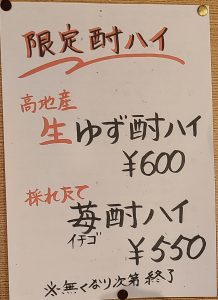 限定酎ハイ
高地産
生ゆず酎ハイ
¥600
採れたて
苺酎ハイ
イチゴ
¥550
※無くなり次第終了